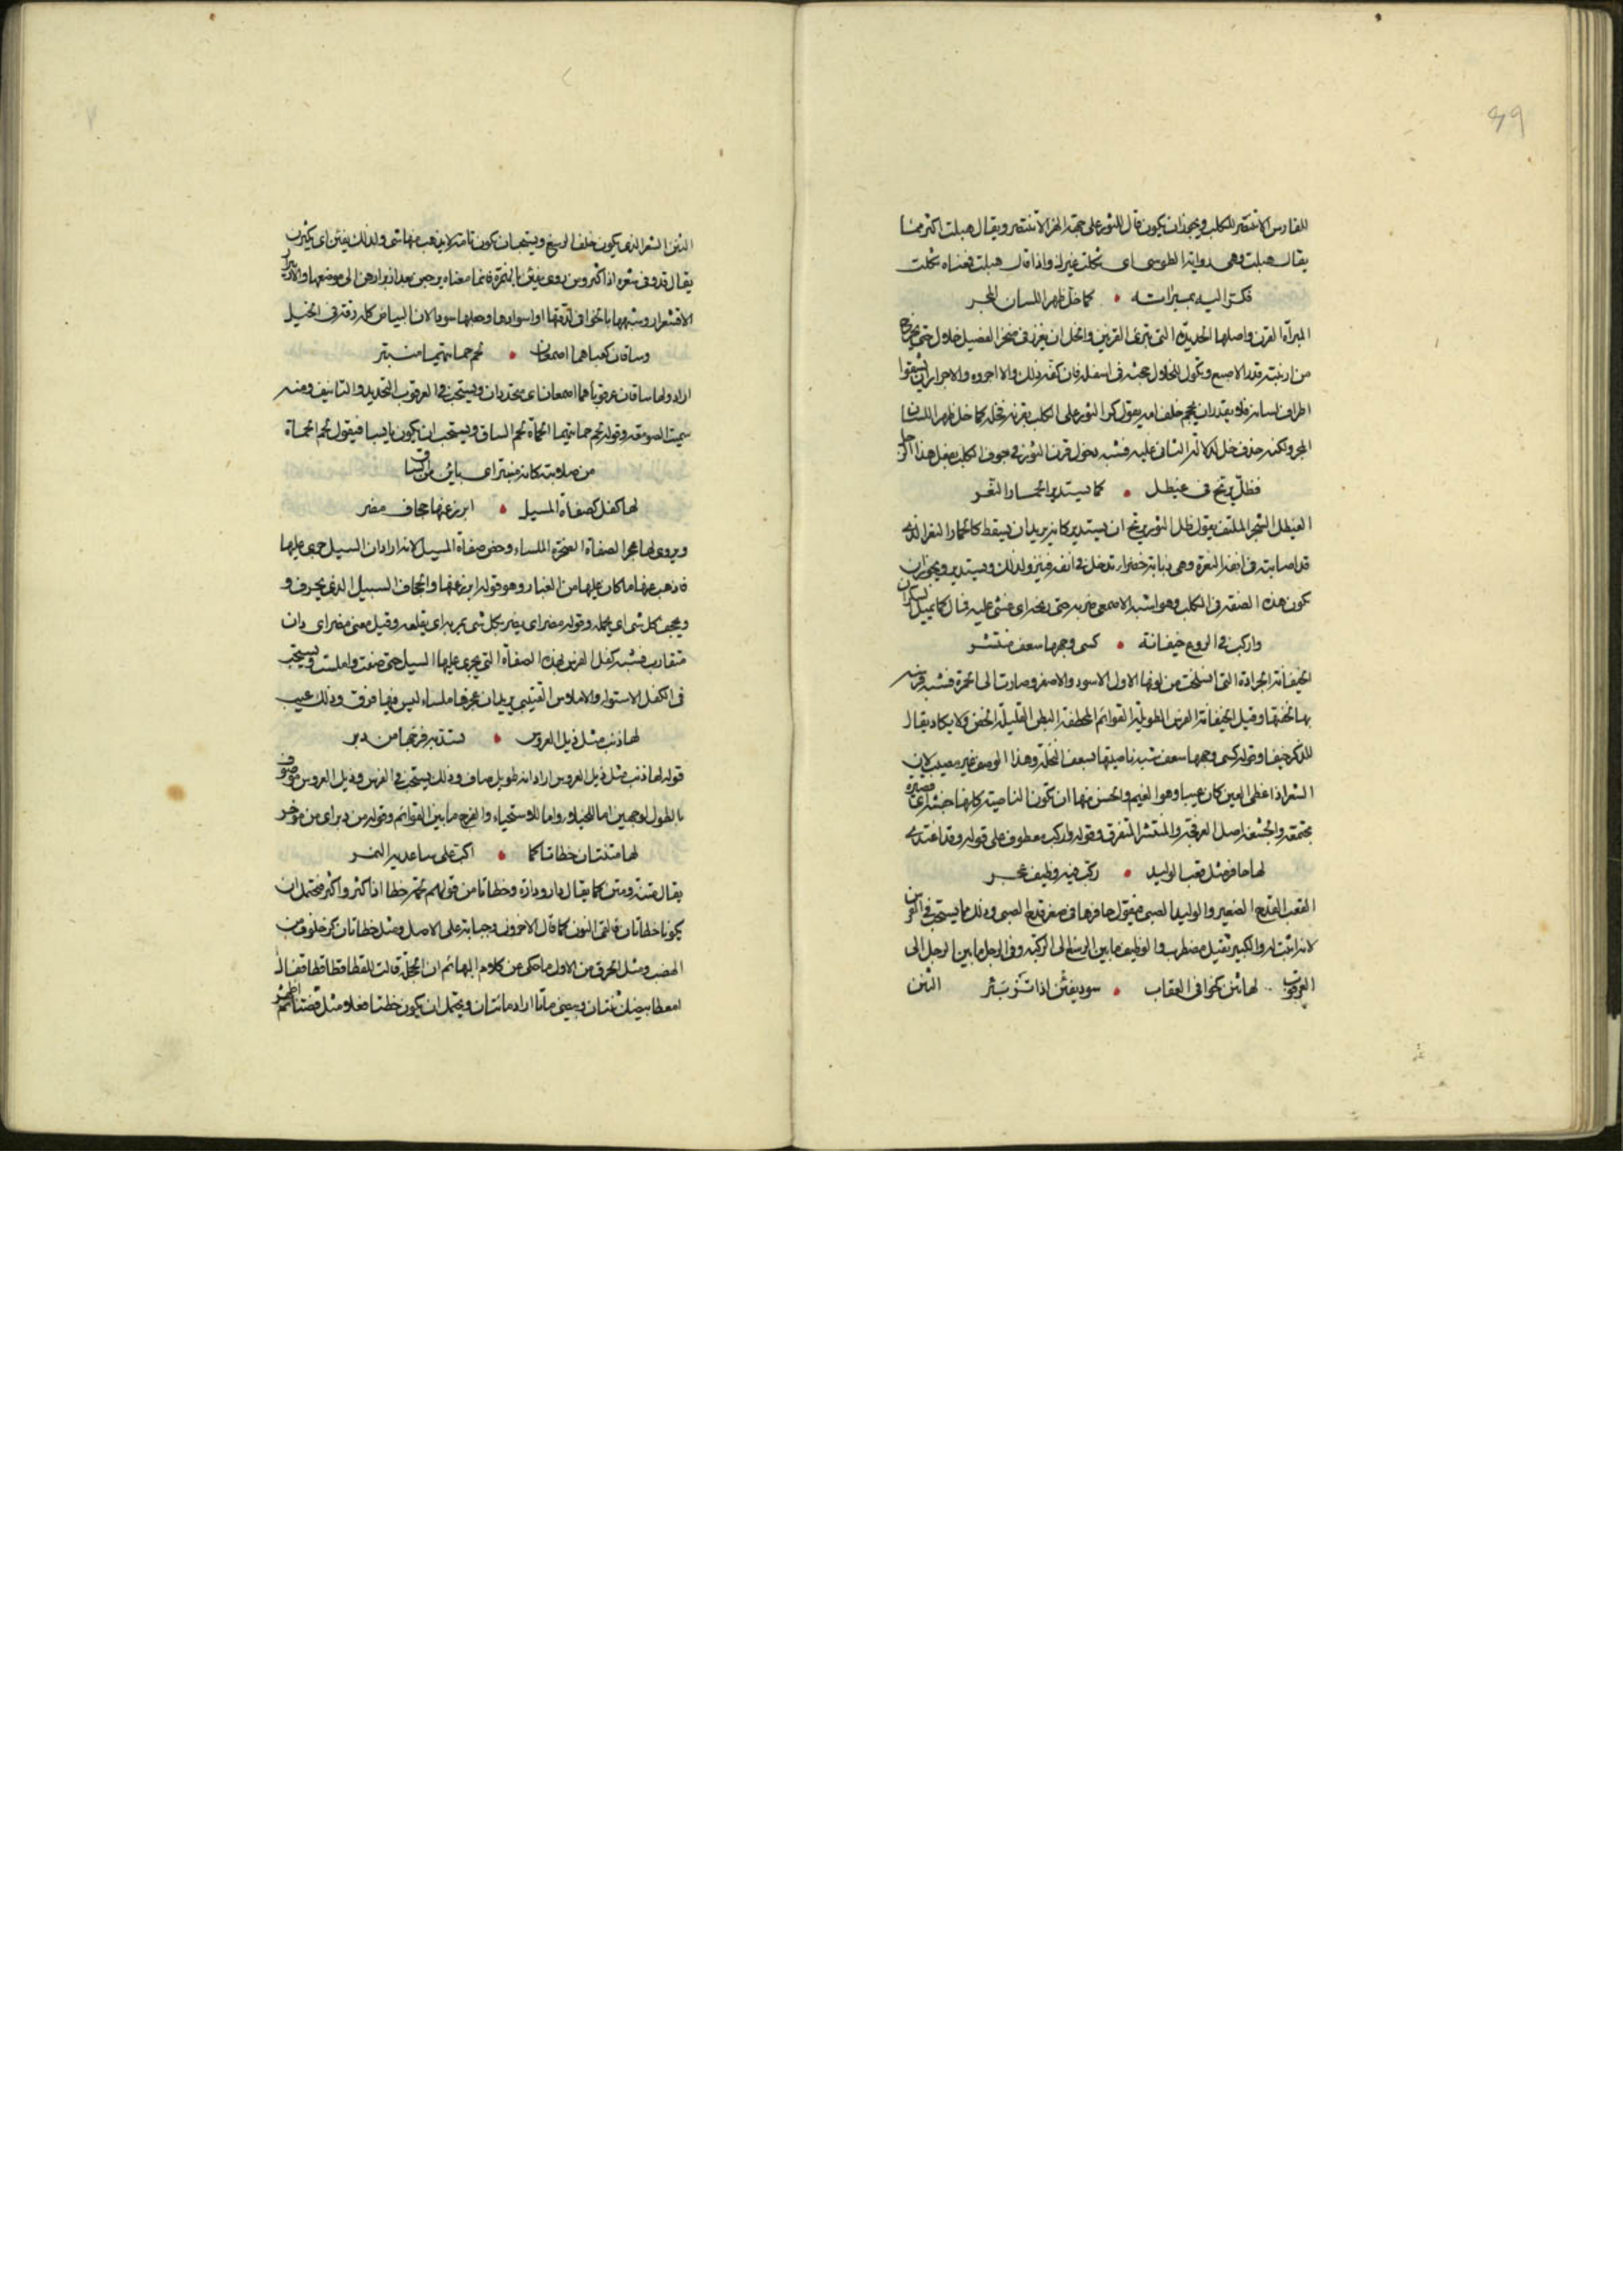 ٤٩
للفارس الا تنتصر للكلب ويجوز ان يكون قال للثور على جهة الهزء الا تنتصر ويقال هبلت اكثر مما
يقال هبلت وهى رواية الطوسى اى ثكلت غيرك واذا قال هبلت فمعناه ثكلت
فكر اليه بمبراته • كما خل ظهر اللسان المجر
المبراة القرن واصلها الحديدة التى تبرى القوس والخل ان يغرز فى منخر الفصيل خلال حتى يخرج
من ارنبته قدر الاصبع ويكون للخلال حجنة فى اسفله فان كفه ذلك والا اجروه والاجرار ان يشقوا
اطراف لسانه فلا يقدر ان يجمع خلف امه يقول كر الثور على الكلب بقرنه فخله كما خل ظهر اللسان
المجر ولكنه حذف خل لدلالة الثانى عليه فشبه دخول قرن الثور فى جوف الكلب بفعل هذا الرجل
فظل يرنح فى غيطل • كما يستدير الحمار النعر
الغيطل الشجر الملتف يقول ظل الثور يرنح ان يستدير كانه يريد ان يسقط كالحمار النعر الذى
قد اصابته فى انفه النعرة وهى ذبابة خضراء تدخل فى انفه فينزو لذلك ويستدير ويجوز ان
تكون هذه الصفة فى الكلب وهو اشبه الاصمعى ضربه حتى رنحه اى غشى عليه فمال كما يميل السكران
واركب فى الروع خيفانة • كسى وجهها سعف منتشر
الخيفانة الجرادة التى انسلخت من لونها الاول الاسود والاصفر وصارت الى الحمرة فشبه فرسه
بها لخفتها وقيل الخيفانة الفرس الطويلة القوائم المخطفة البطن القليلة النحض ولا يكاد يقال
للذكر خيف وقوله كسى وجهها سعف شبه ناصيتها بسعف النخلة وهذا الوصف غير مصيب لان
الشعر اذا غطى العين كان عيبا وهو الغمم والحسن منها ان تكون الناصية كانها جثلة اى قصيرة
مجتمعة والجثة اصل العرفجة والمنتشر المتفرق وقوله واركب معطوف على قوله وقد اغتدى
لها حافر مثل قعب الوليد • ركب فيه وظيف عجر
القعب القدح الصغير والوليد الصبى فيقول حافرها فى صغر قدح الصبى وذلك مما يستحب فى الفرس
لانه اثبت له والكبير ثقيل مضطرب والوظيف ما بين الرسغ الى الركبة وفى الرجل ما بين الرجل الى
العرقوب لها ثنن كخوافى العقاب • سود يفئن اذا تزبئر
الثنن
الثنن الشعر الذى يكون خلف الرسغ ويستحب ان تكون تامة لا يذهب منها شى ولذلك يفين اى يكثرن
يقال قد وفى شعره اذا كثر ومن روى يفئن بالهمزة فانما معناه يرجعن بعد ازبرارهن الى موضعها والازبرار
الاقشعرار وشبهها بالخوافى لدقتها او اسوادها وجعلها سودا لان البياض كله رقة فى الخيل
وساقان كعباهما اصمعان • لحم حماتيهما منبتر
اراد ولها ساقان عرقوباهما اصمعان اى محتددان ويستحب فى العرقوب التحديد والتانيف ومنه
سميت الصومعة وقوله لحم حماتيهما الحماة لحم الساق ويستحب ان يكون يابسا فيقول لحم الحماة
من صلابته كانه منبتر اى باين من الساق
لها كفل كصفاة المسيل • ابرز عنها جحاف مضر
ويروى لها عجز الصفاة الصخرة الملساء وخص صفاة المسيل لانه اراد ان السيل جرى عليها
فاذهب عنها ما كان عليها من الغبار وهو قوله ابرز عنها والجحاف السيل الذى يجرف و
ويجحف كل شى اى يحمله وقوله مضر اى يضر بكل شى يمر به اى يقلعه وقيل معنى مضر اى دان
متقارب فشبه كفل الفرس بهذه الصفاة التى يجرى عليها السيل حتى صفت واملست ويستحب
فى الكفل الاستواء والاملاس القتيبى يريد ان عجزها ملساء ليس فيها فرق وذلك عيب
لها ذنب مثل ذيل العروس • تسد به فرجها من دبر
قوله لها ذنب مثل ذيل العروس اراد انه طويل صاف وذلك يستحب فى الفرس وذيل العروس موصوف
بالطول لوجهين اما للخيلاء واما للاستحياء والفرج ما بين القوائم وقوله من دبر اى من مؤخر
لها متنتان خظاتا كما • اكب على ساعديه النمر
يقال متنة ومتن كما يقال دار ودارة وخظاتا من قولهم لحمه خظا اذا كثر واكثر فيحتمل ان
يكونا خظاتان فالقى النون كما قال الاخرون وجيا به على الاصل ومثل خظاتان كزحلوف من
الهضب ومثل الحرف من الاول ما حكى من كلام البهائم ان الحجلة قالت للقطا قطا قطا قفال
امعطا بيضك ثنتان وبيضى مائتا اراد مائتان ويحتمل ان يكون خظتا فعلا مثل قضتا اظهر